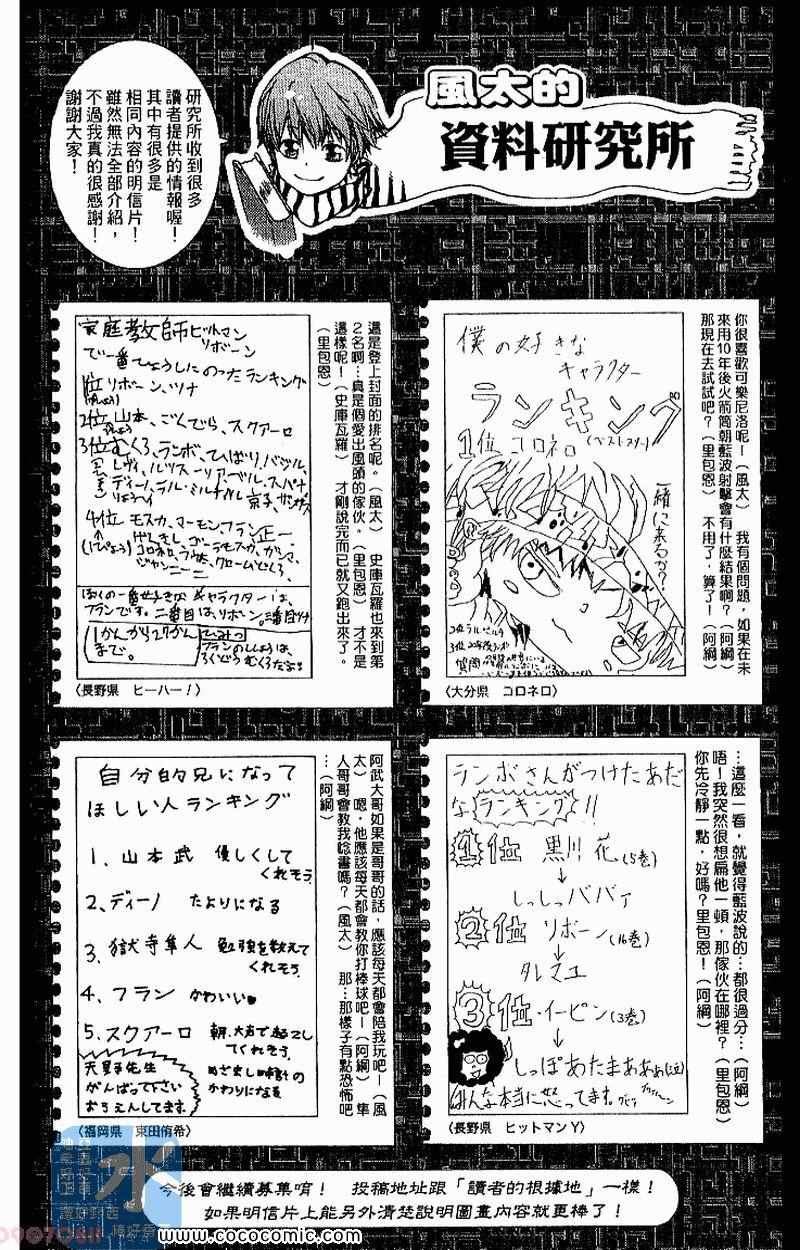 風太的
資料研究所
研究所收到很多
讀者提供的情報喔！
其中有很多是
相同內容的明信片！
雖然無法全部介紹，
不過我真的很感謝！
謝謝大家！
你很喜歡可樂尼洛呢－（風太）　我有個問題，如果在未
來用10年後火箭筒朝藍波射擊會有什麼結果啊？（阿綱）
那現在去試試吧？（里包恩）　不用了，算了！（阿綱）
僕の好きな
キャラクター
ランキング
1位 コロネロ
一緒に来るか？
2位 ラル・ミルチ
質問
〈大分県　コロネロ〉
這是登上封面的排名呢。（風太）　史庫瓦羅也來到第
2名啊…真是個愛出風頭的傢伙。（里包恩）　才不是
這樣呢！（史庫瓦羅）　才剛說完而已就又跑出來了。
（里包恩）
家庭教師ヒットマン
リボーン
で一番ひょうしにのったランキング
1位 リボーン、ツナ
2位 山本、ごくでら、スクアーロ
3位 むくろ、ランボ、ひばり、バジル、
レヴィ、ルッスーリア、ベル、スパナ
ディーノ、ラル・ミルチ、ハル、京子、ザンザス
りょうへい
4位 モスカ、マーモン、フラン、正一
(1ひょう) げんきし、ゴーラモスカ、ガンマ、
コロネロ、フゥ太、クロームどくろ、
ぼくの一番好きなキャラクターは、
フランです。二番目は、リボーン。三番目ツナ
1かんから27かん
まで。
ひみつ
フランのししょうは、
ろくどうむくろだよ
〈長野県　ヒーハー！〉
…這麼一看，就覺得藍波說的…都很過分…（阿綱）
唔！我突然很想扁他一頓，那傢伙在哪裡？（里包恩）
你先冷靜一點，好嗎？里包恩！（阿綱）
ランボさんがつけたあだ
なランキング!!
1位 黒川 花（5巻）
↓
しっしっババァ
2位 リボーン（16巻）
↓
タレマユ
3位・イーピン（3巻）
↓
しっぽあたまあああ
みんな本当に怒ってます。
〈長野県　ヒットマンY〉
阿武大哥如果是哥哥的話，應該每天都會陪我玩吧－（風
太）　嗯，他應該每天都會教你打棒球吧－（阿綱）　隼
人哥哥會教我唸書嗎？（風太）　那…那樣子有點恐怖吧
…（阿綱）
自分的兄になって
ほしい人ランキング
1、山本武　優しくして
くれそう
2、ディーノ　たよりになる
3、獄寺隼人　勉強を教えて
くれそう。
4、フラン　かわいい
5、スクアーロ　朝、大声で起こし
てくれそう。
めざまし時計の
かわりになる
天野先生
がんばって下さい
おうえんしてます。
〈福岡県　東田侑希〉
今後會繼續募集唷！　投稿地址跟「讀者的根據地」一樣！
如果明信片上能另外清楚說明圖畫內容就更棒了！
水
www.cococomic.com